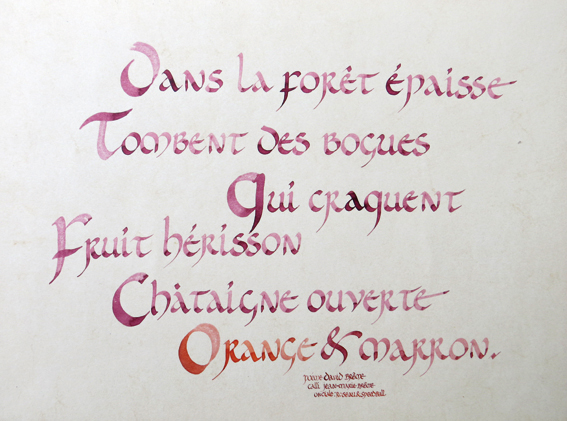 Dans la forêt épaisse
Tombent des bogues
Qui craquent
Fruit hérisson
Châtaigne ouverte
Orange & marron.
David
Calli Jean-Marie